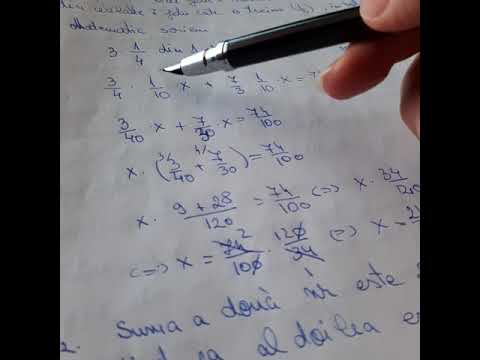 o treime (1/3)
Matematic scriem
3 1/4 din 1
3/4 · 1/10 x + 7/3 · 1/10 · x = 7
3/40 · x + 7/30 · x = 74/100
x · (³⁾3/40 + ⁴⁾7/30) = 74/100
x · 9+28/120 = 74/100 (=) x · 34/120
(=) x = 74/100 2 · 120/34 (=) x =
2. Suma a două nr este
al doilea e